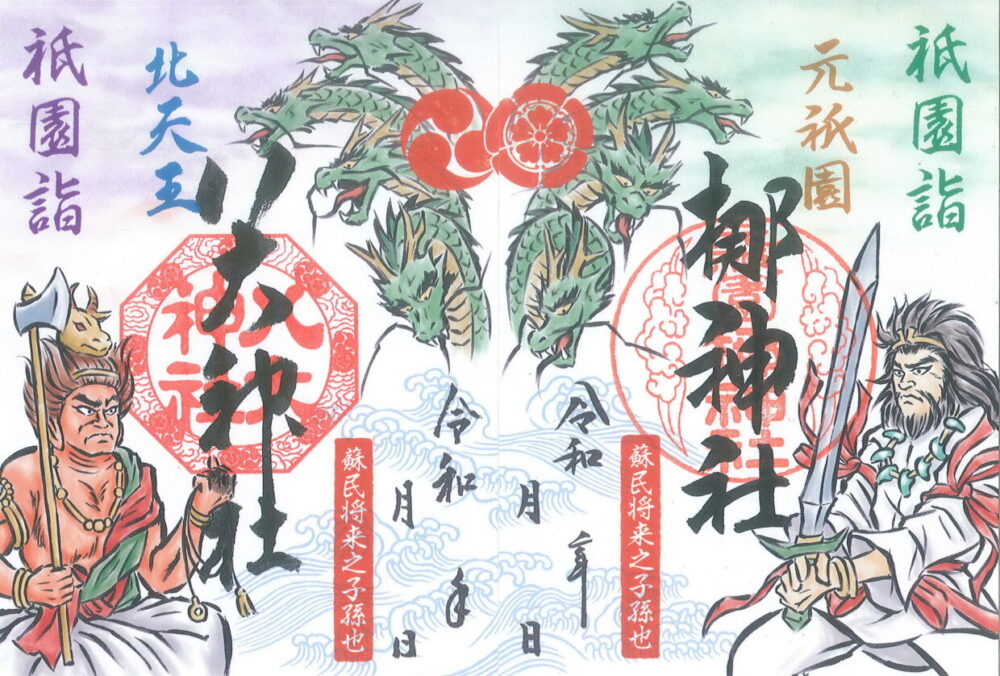 祇園詣
元祇園
梛神社
蘇民将来之子孫也
令和 年
月 日
令和 年
月 日
蘇民将来之子孫也
八大神社
八大
神社
北天王
祇園詣